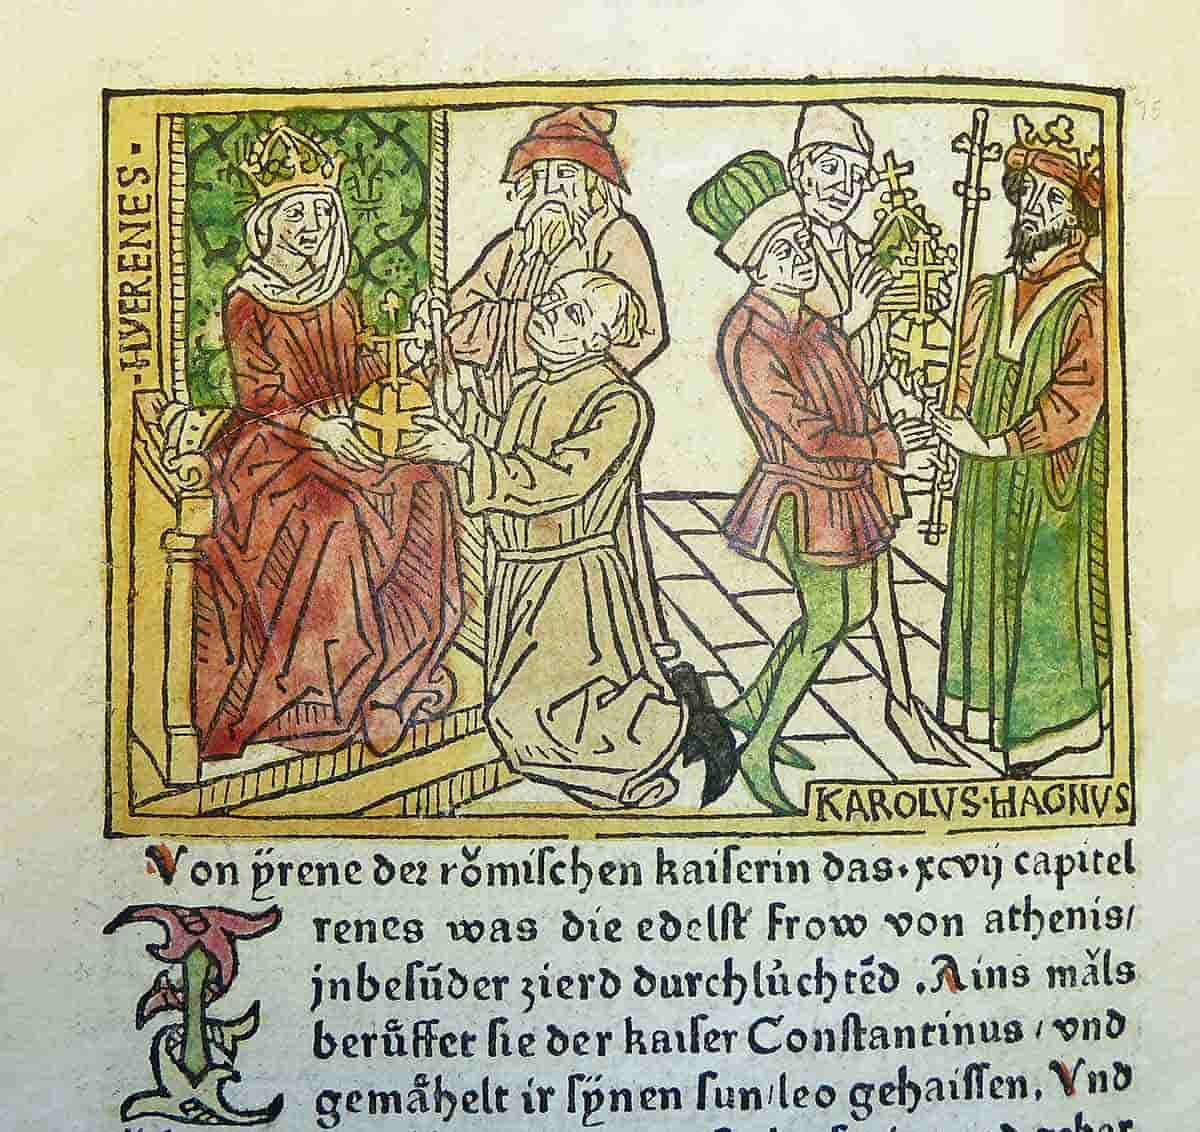 HVERENES
KAROLVS·MAGNVS
Von ÿrene der rŏmiſchen kaiſerin das·xcvij capitel
Irenes was die edelſt frow von athenis/
jnbeſūder zierd durchlúchtēd. Ains mǎls
berůffet ſie der kaiſer Conſtantinus / vnd
gemåhelt ir ſÿnen ſun/leo gehaiſſen. Vnd